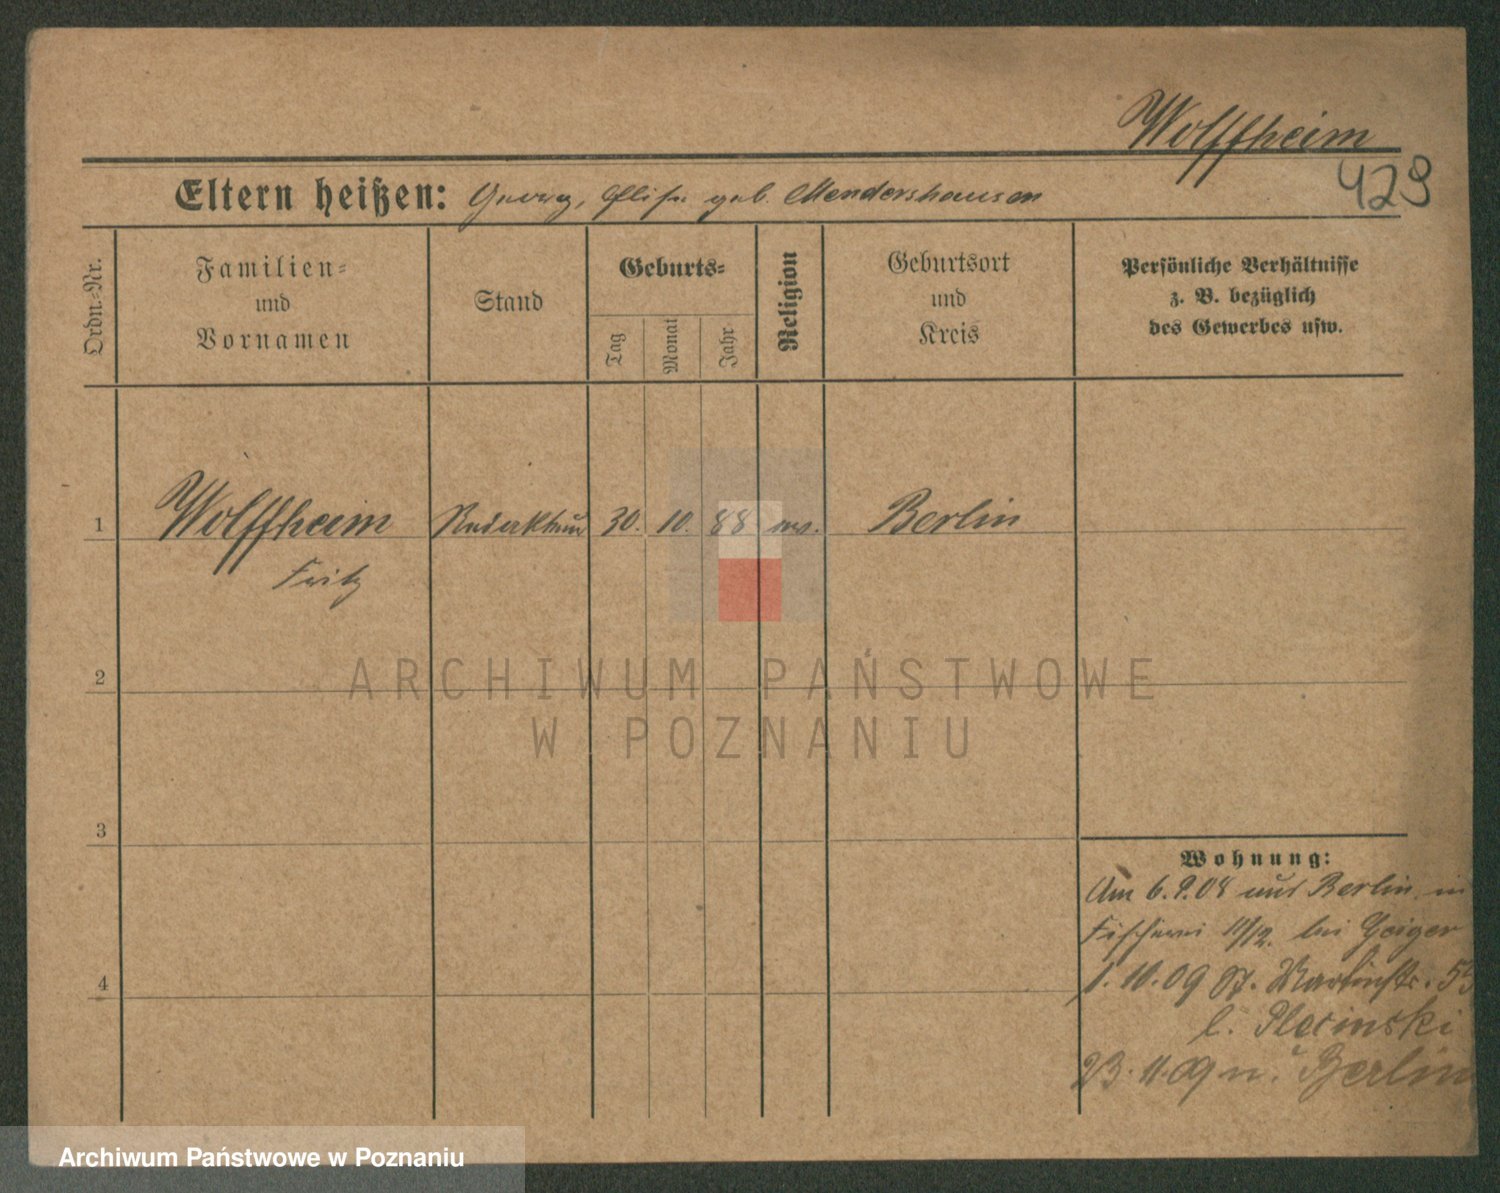 Wolffheim
429
Eltern heißen: Georg, Elise geb. Mendershausen
Ordn.-Nr.
Familien-
und
Vornamen
Stand
Geburts-
Tag
Monat
Jahr
Religion
Geburtsort
und
Kreis
Persönliche Verhältnisse
z. B. bezüglich
des Gewerbes usw.
1
Wolffheim
Fritz
Redakteur
30.
10.
88
mos.
Berlin
2
3
4
Wohnung:
Am 6.9.08 aus Berlin in
Fischerei 11/12. bei Geiger
1.10.09 St. Martinstr.
b.
23.11.09 n. Berlin
ARCHIWUM PAŃSTWOWE
W POZNANIU
Archiwum Państwowe w Poznaniu